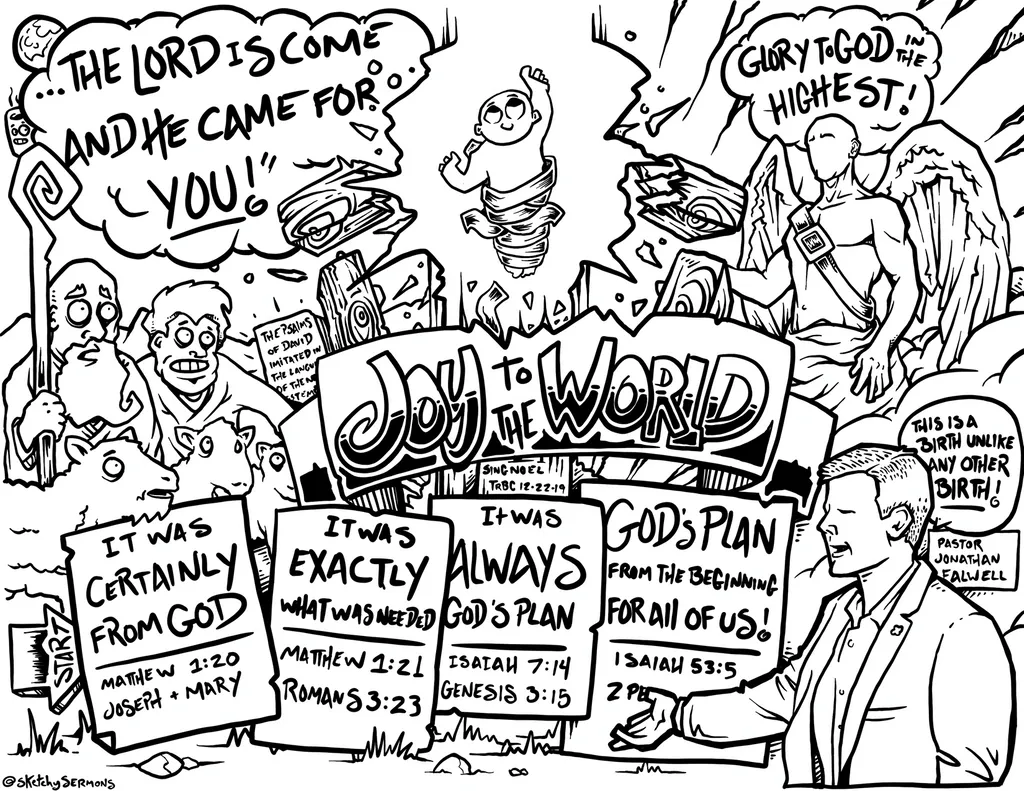 ...THE LORD IS COME
AND HE CAME FOR
YOU!"
GLORY TO GOD IN THE
HIGHEST!
THE PSALMS
OF DAVID
IMITATED IN
THE LANGU
OF THE NE
JOY TO THE WORLD
SING NOEL
TRBC 12-22-19
THIS IS A
BIRTH UNLIKE
ANY OTHER
BIRTH!
PASTOR
JONATHAN
FALWELL
START
IT WAS
CERTAINLY
FROM GOD
MATTHEW 1:20
JOSEPH + MARY
IT WAS
EXACTLY
WHAT WAS NEEDED
MATTHEW 1:21
ROMANS 3:23
IT WAS
ALWAYS
GOD'S PLAN
ISAIAH 7:14
GENESIS 3:15
GOD'S PLAN
FROM THE BEGINNING
FOR All OF US!
ISAIAH 53:5
2 PE
@SKETCHYSERMONS